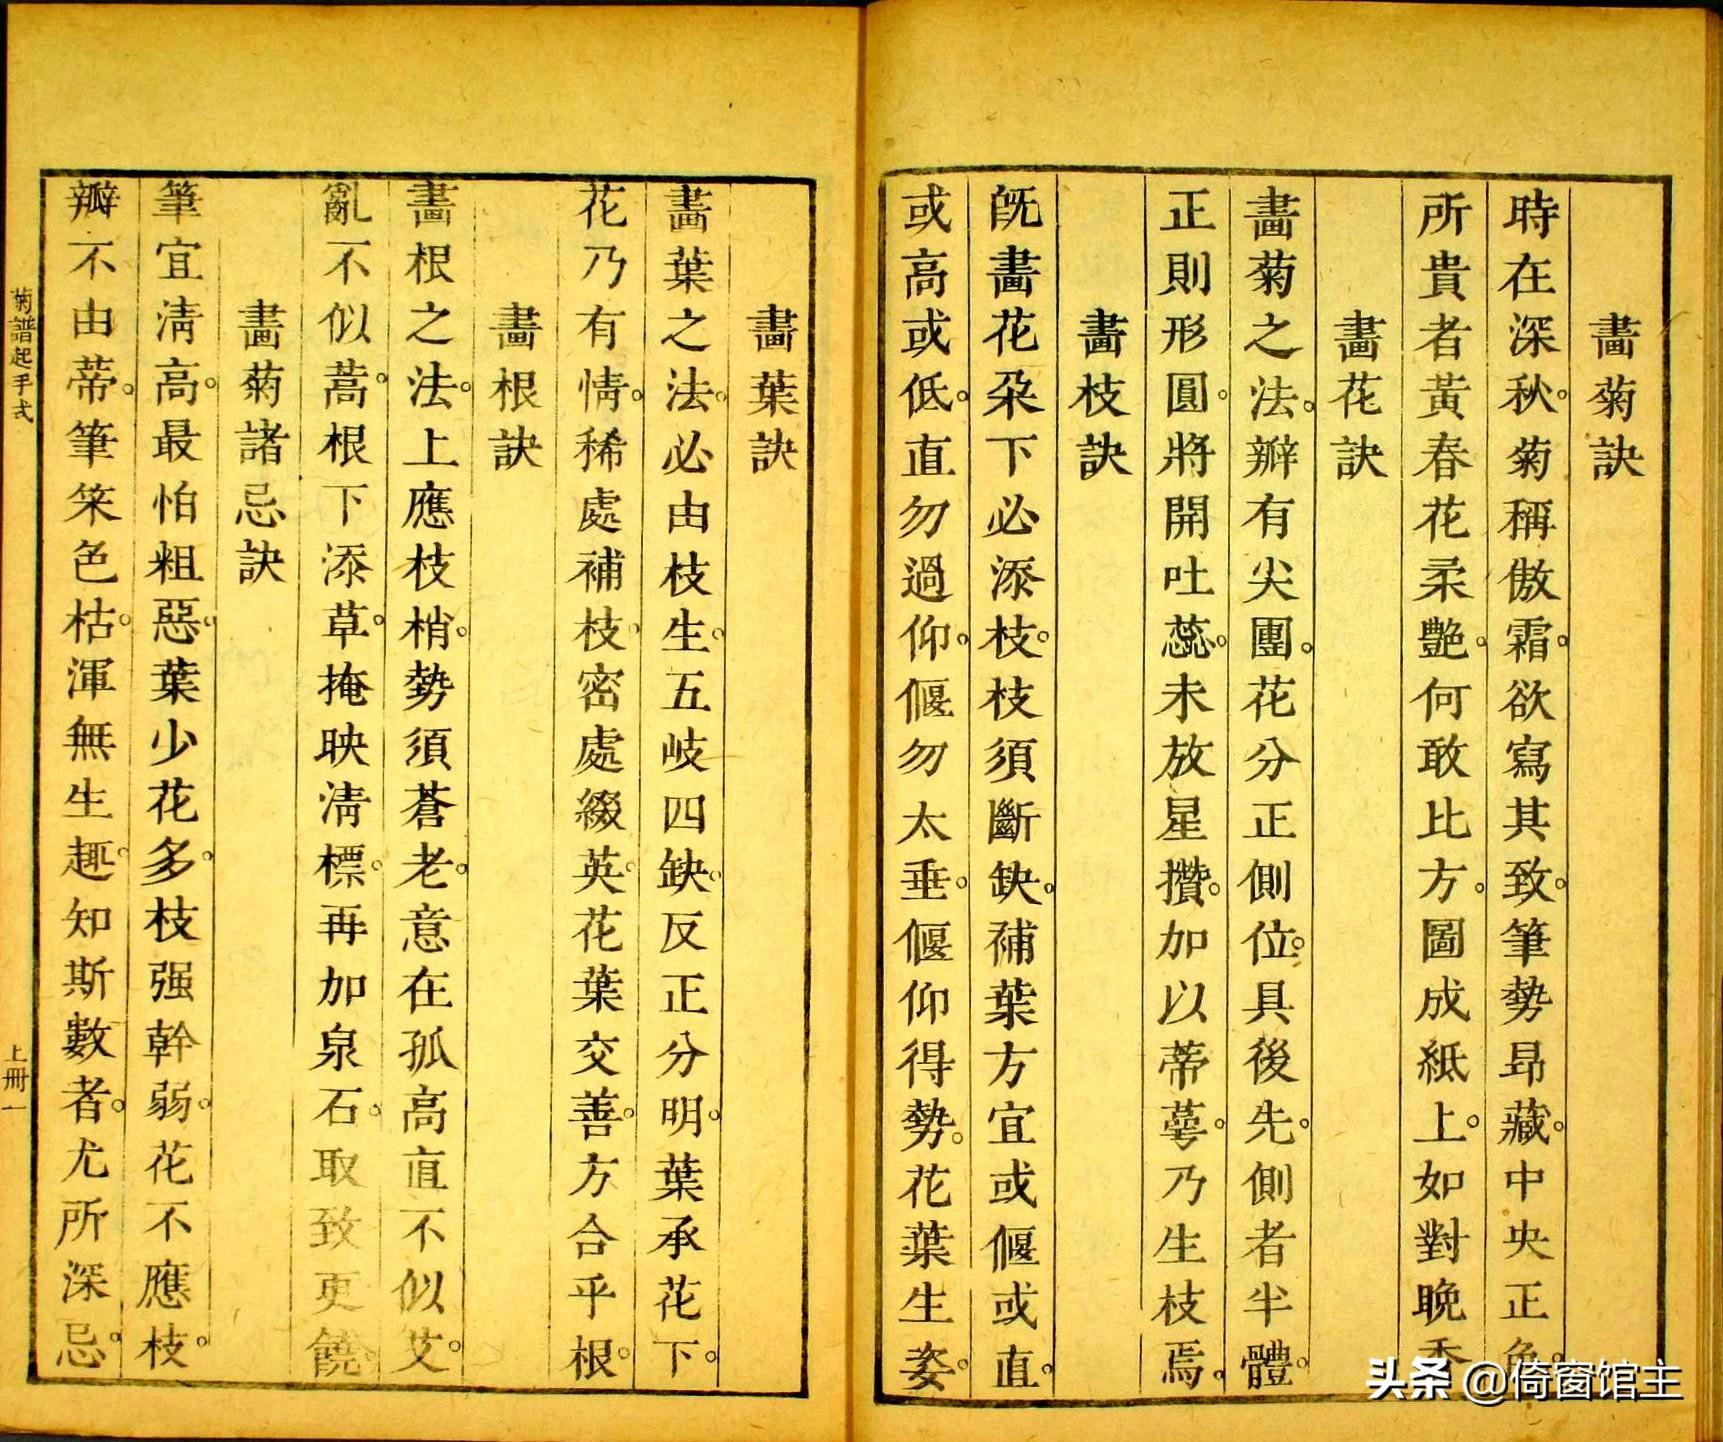 畫菊訣
時在深秋。菊稱傲霜。欲寫其致。筆勢昂藏。中央正色。
所貴者黃春花柔艷。何敢比方。圖成紙上。如對晚香
畫花訣
畫菊之法。瓣有尖團。花分正側位。具後先。側者半體。
正則形圓。將開吐蕊。未放星攢。加以蒂蕚。乃生枝焉。
畫枝訣
旣畫花朶下必添枝。枝須斷缺。補葉方宜或偃或直。
或高或低。直勿過仰。偃勿太垂。偃仰得勢。花葉生姿。
畫葉訣
畫葉之法。必由枝生。五岐四缺。反正分明。葉承花下。
花乃有情。稀處補枝。密處綴英。花葉交善。方合乎根。
畫根訣
畫根之法。上應枝梢。勢須蒼老。意在孤高直不似艾。
亂不似蒿。根下添草。掩映清標。再加泉石。取致更饒。
畫菊諸忌訣
筆宜淸高。最怕粗惡。葉少花多。枝强幹弱。花不應枝。
瓣不由蒂。筆笨色枯。渾無生趣。知斯數者。尤所深忌。
菊譜起手式
上冊一
头条 @倚窗馆主